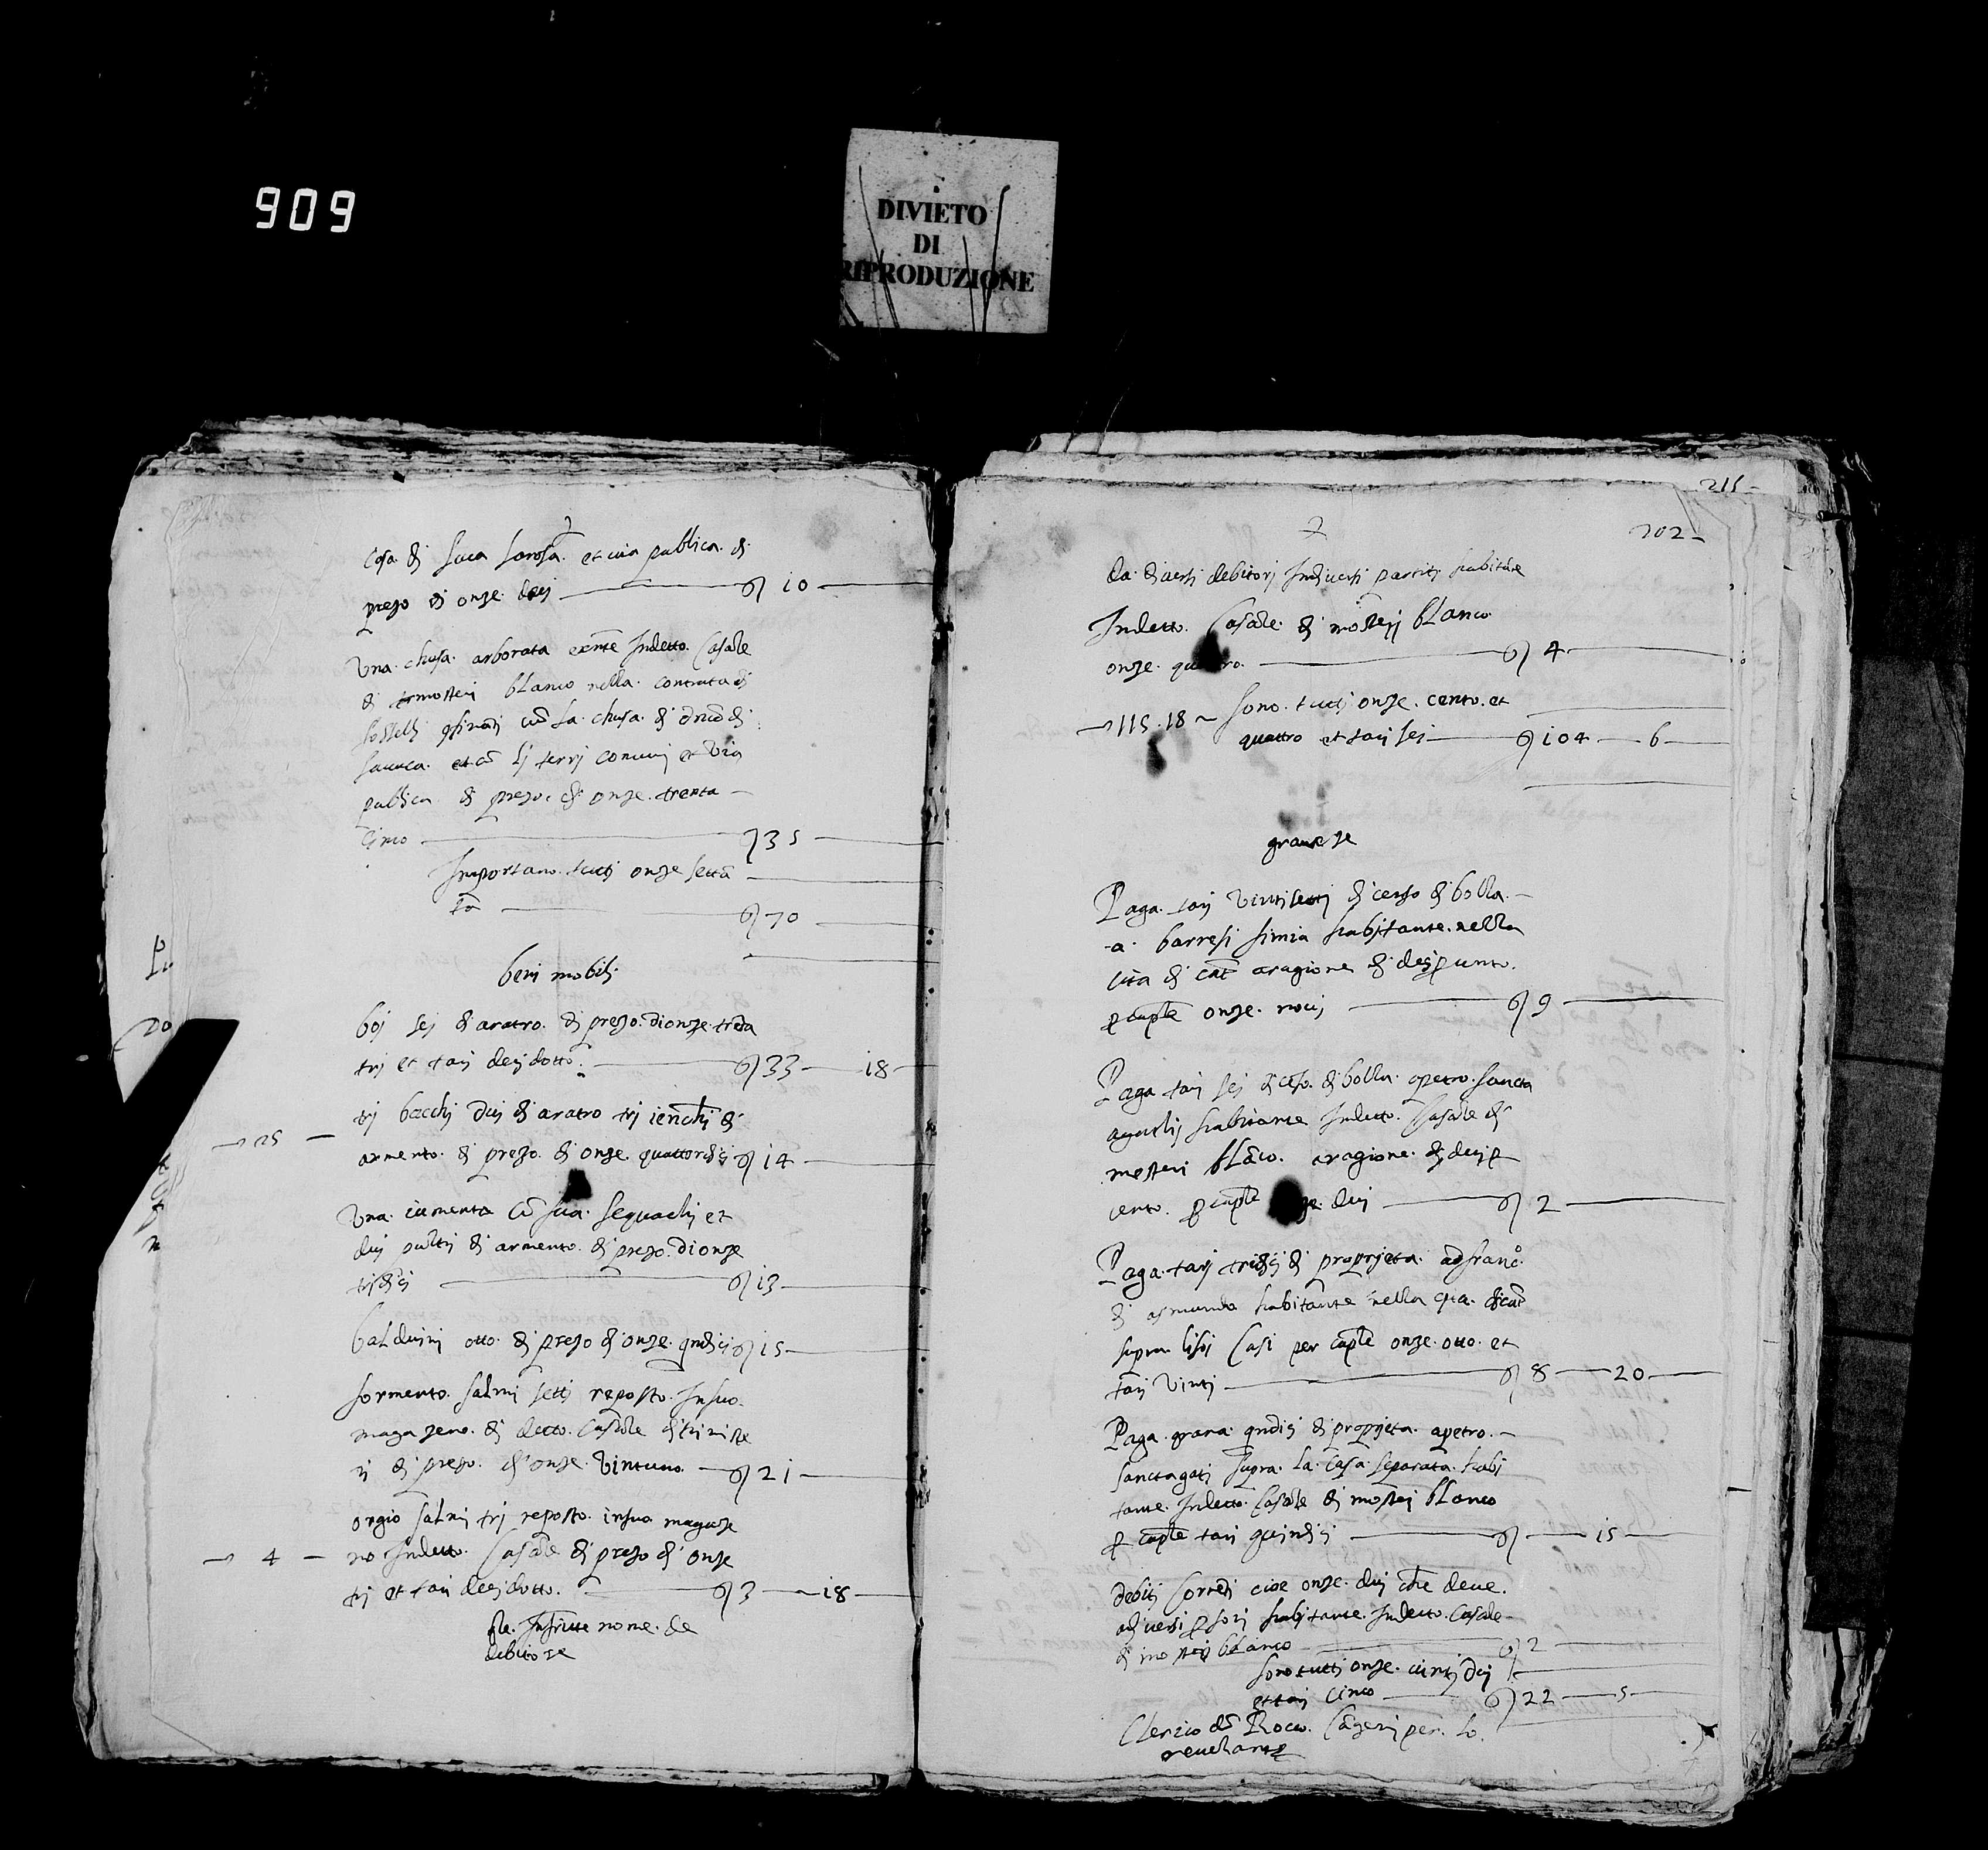 909
DIVIETO
DI
RIPRODUZIONE
casa di luca et via publica di
prezo di onze deci — 10 —
Una chusa arborata indetto Casale
di mosteri blanco nella contrata di
cu la chusa di
et cu li terri comuni et via
publica di prezo di onze trenta
Cinco — 35 —
Importano tutti onze setta
ta — 70 —
beni mobili
boj sej di aratro di prezo di onze treta
trj et tarj decidotto — 33 — 18 —
25 —
trj bacchi duj di aratro trj iencki di
armento di prezo di onze quattordici 14 —
Una iumenta cu sua sequachi et
duj pultri di armento di prezo di onze
tridici — 13 —
balduini otto di prezo di onze qndici 15 —
formento salmi setti reposto in suo
magazeno di detto Casale
ri di prezo di onze vintuno — 21 —
orgio salmi trj reposto in suo magaze
4 —
no indetto Casale di prezo di onze
trj et tarj decidotto — 3 — 18 —
nome de
debitore
215
202
da diversi debitorj indiversi partiti habitare
Indetto Casale di mosterj blanco
onze — 4 —
115 . 18
sono tutti onze cento et
quattro et tarj sei — 104 — 6 —
graveze
Paga tarj vintisetti di censo di bolla
a barresi simia habitante nella
cita di cat a ragione di deci p cento
p captle onze novj — 9 —
Paga tarj sej di ceso di bolla a petro sancta
agathj habitante Indetto Casale di
mosteri blaco a ragione di decj p
cento p captle duj — 2 —
Paga tarj tridici di proprjeta ad franco
di asmundo habitante nella cita di cat
supra casi per captle onze otto et
tarj vinti — 8 — 20 —
Paga grana qndici di proprjeta a petro
sanctagati supra la casa separata habi
tante Indetto Casale di mosterj blanco
p captle tarj quindici — 15 —
debiti correti cioe onze duj che deve
a diversi psoni habitante Indetto Casale
di mosterj blanco — 2 —
sono tutti onze vintj duj
et tarj cinco — 22 — 5 —
Clerico do Rocco per lo
revelante